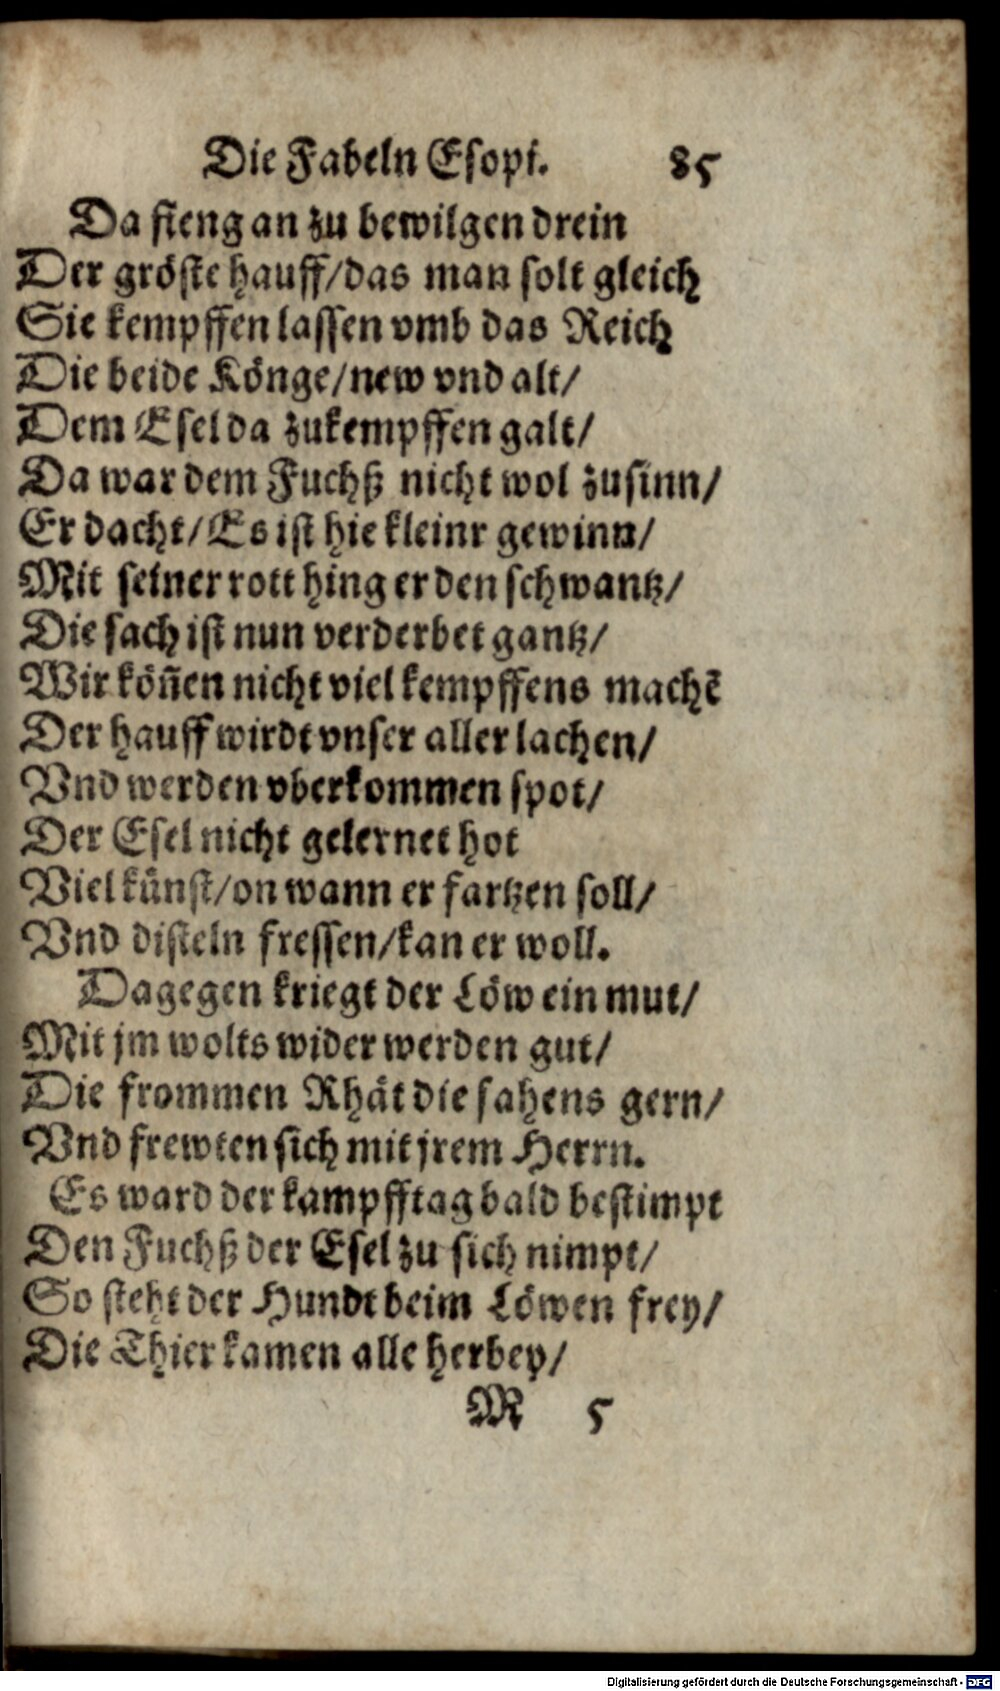 Die Fabeln Esopi. 85
Da fieng an zu bewilgen drein
Der gröste hauff/das man solt gleich
Sie kempffen lassen vmb das Reich
Die beide Könge/new vnd alt/
Dem Esel da zukempffen galt/
Da war dem Fuchß nicht wol zusinn/
Er dacht/Es ist hie kleinr gewinn/
Mit seiner rott hing er den schwantz/
Die sach ist nun verderbet gantz/
Wir köñen nicht viel kempffens machẽ
Der hauff wirdt vnser aller lachen/
Vnd werden vberkommen spot/
Der Esel nicht gelernet hot
Viel künst/on wann er fartzen soll/
Vnd disteln fressen/kan er woll.
Dagegen kriegt der Löw ein mut/
Mit jm wolts wider werden gut/
Die frommen Rhät die sahens gern/
Vnd frewten sich mit jrem Herrn.
Es ward der kampfftag bald bestimpt
Den Fuchß der Esel zu sich nimpt/
So steht der Hundt beim Löwen frey/
Die Thier kamen alle herbey/
M 5
Digitalisierung gefördert durch die Deutsche Forschungsgemeinschaft - DFG